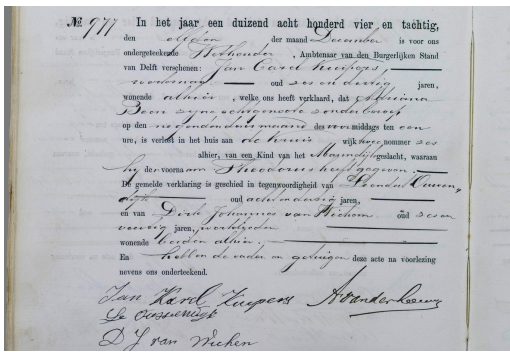 № 977 In het jaar een duizend acht honderd vier en tachtig,
den elfden der maand December is voor ons
ondergeteekende Wethouder, Ambtenaar van den Burgerlijken Stand
van Delft verschenen: Jan Carel Kuipers,
werkman oud zes en dertig jaren,
wonende alhier, welke ons heeft verklaard, dat Adriana
Boon zijne echtgenoote zonder beroep
op den negenden dezer maand des voormiddags ten een
ure, is verlost in het huis aan de wijk twee nommer zes
alhier, van een Kind van het Mannelijk geslacht, waaraan
hij de voornaam Theodorus heeft gegeven.
De gemelde verklaring is geschied in tegenwoordigheid van
oud jaren,
en van Dirk Johannes van oud zes en
veertig jaren,
wonende beiden alhier,
En hebben de vader en getuigen deze acte na voorlezing
nevens ons onderteekend.
Jan Karel Kuipers A van der Leeuw
D J van